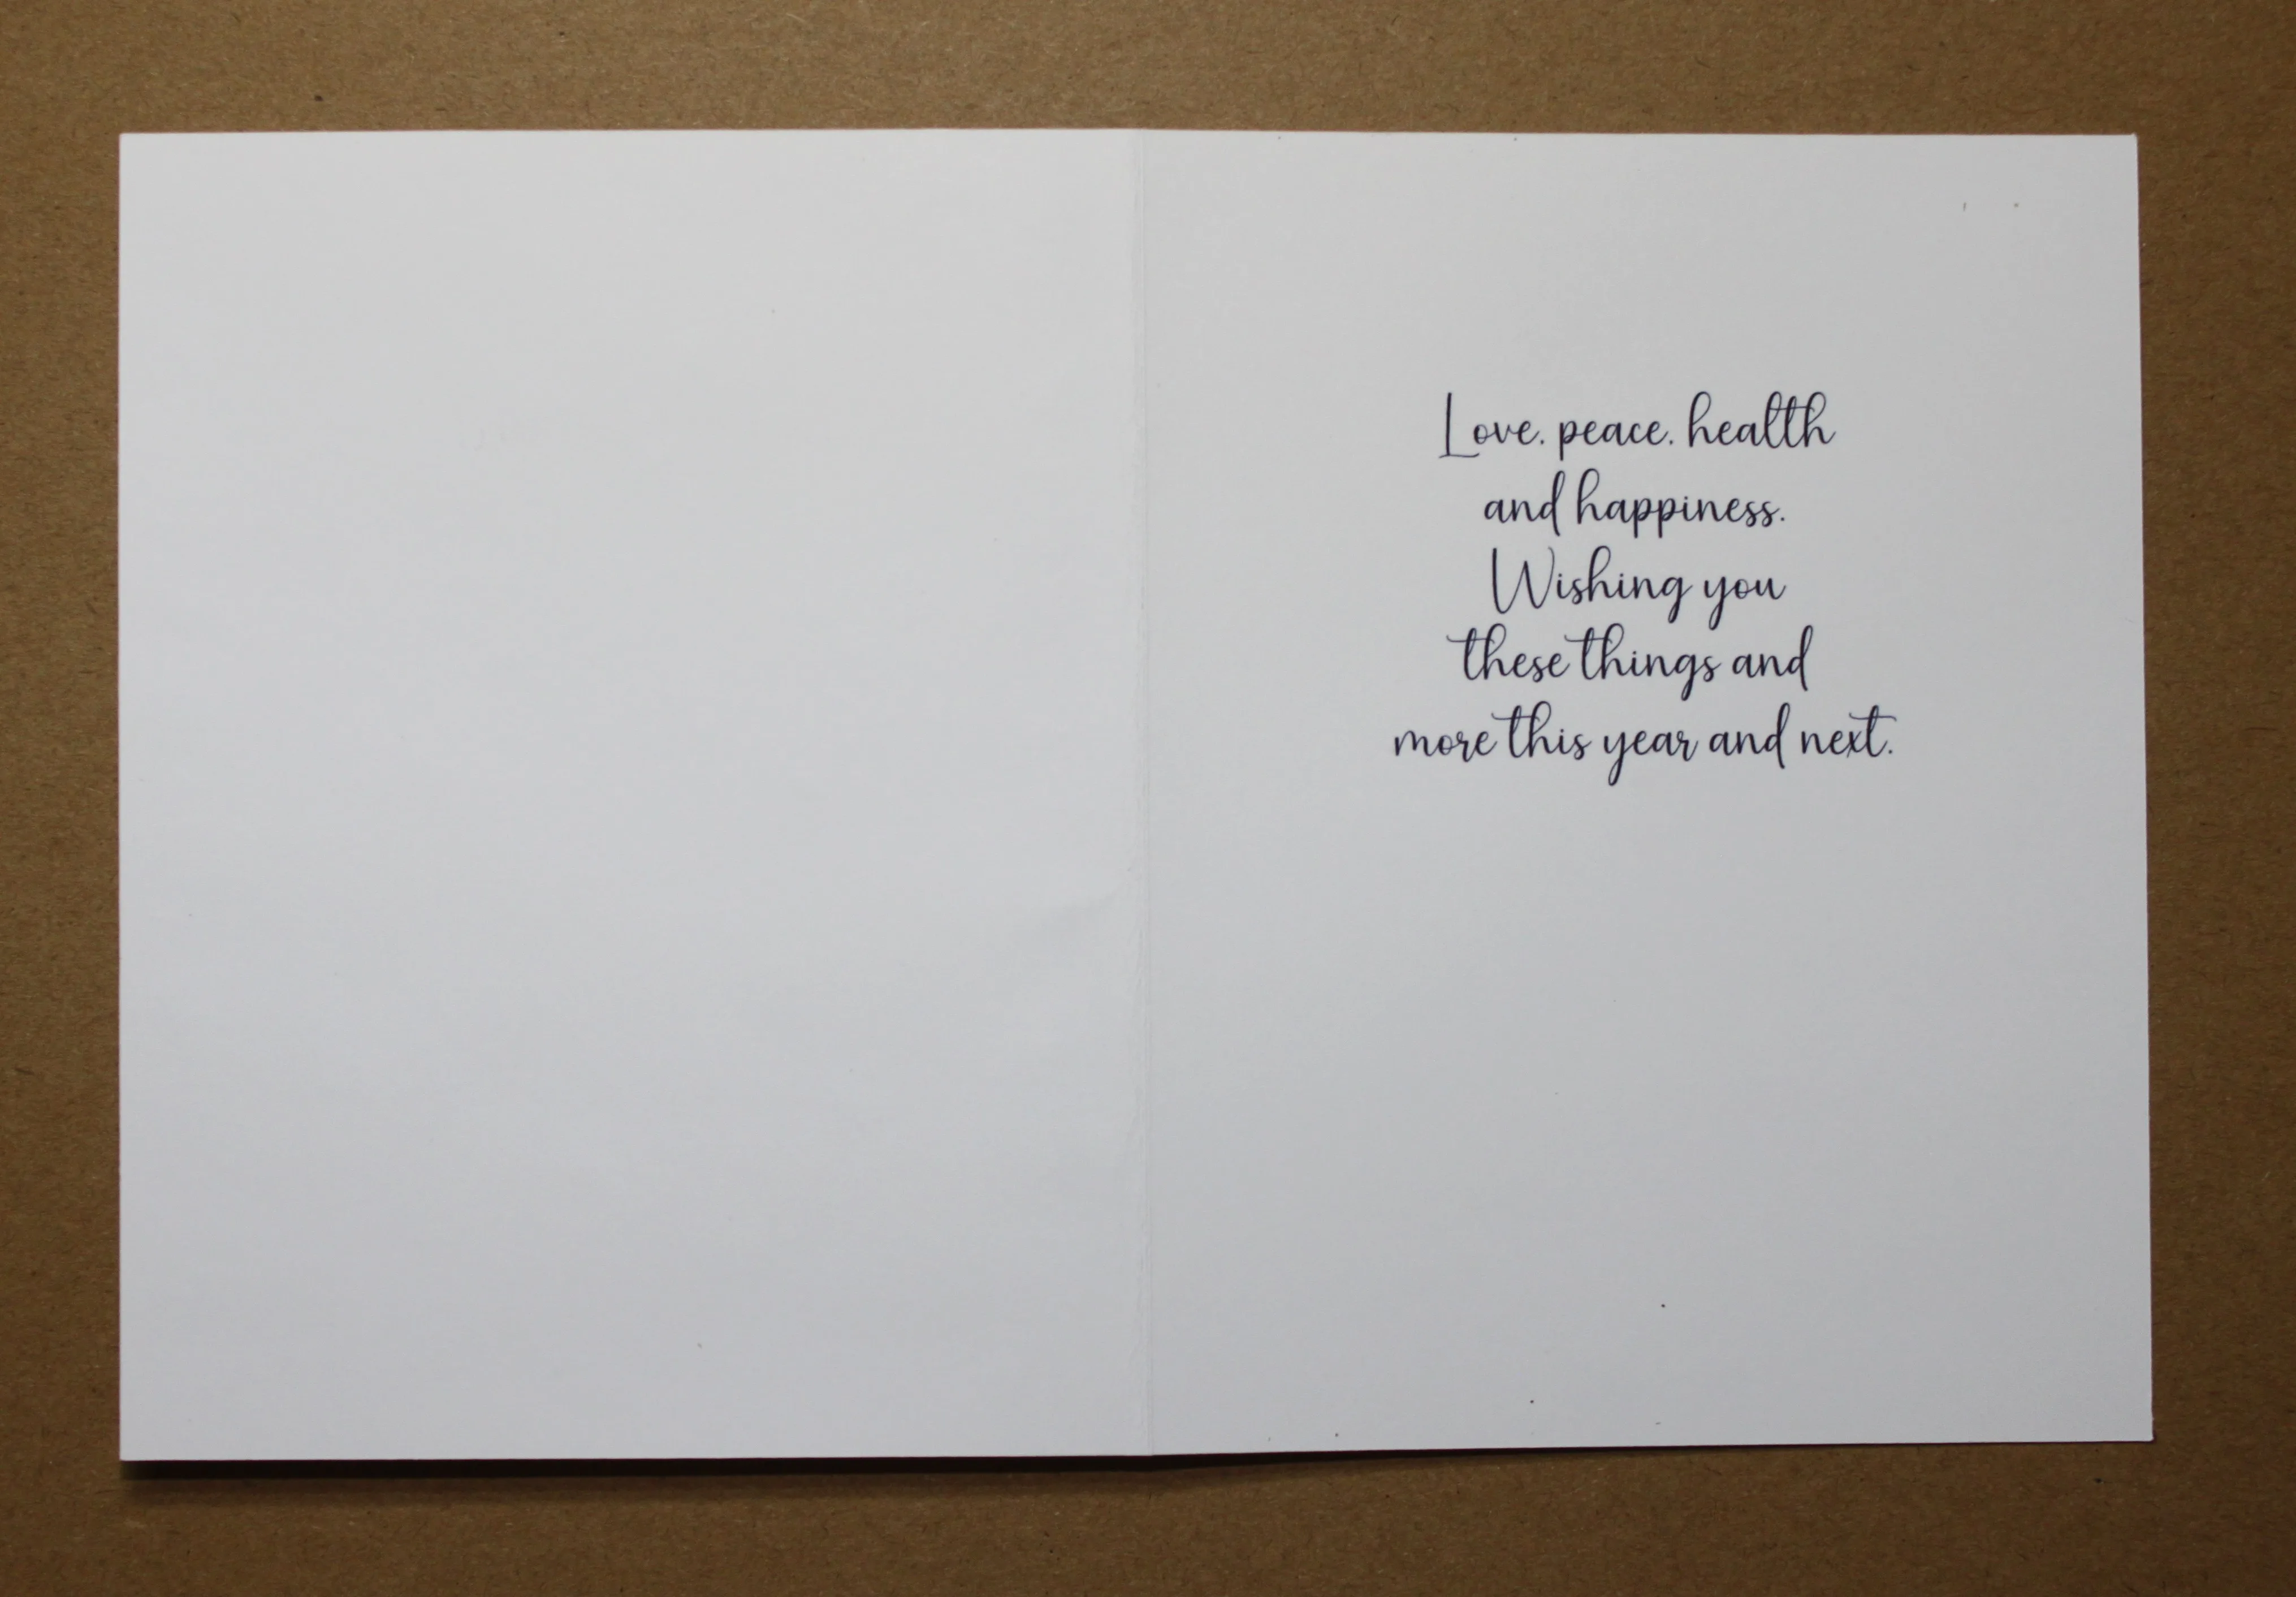 Love. peace. health
and happiness.
Wishing you
these things and
more this year and next.